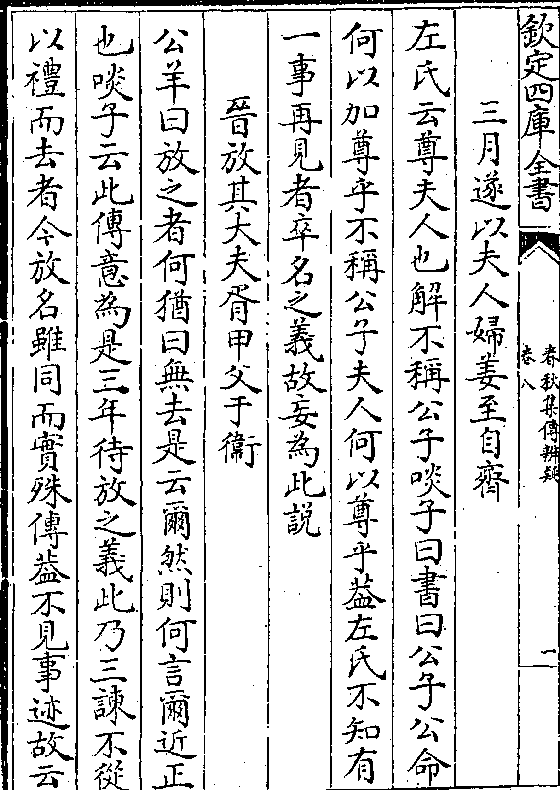 欽定四庫全書
春秋集傳辨疑
卷八
一
三月遂以夫人婦姜至自齊
左氏云尊夫人也解不稱公子啖子曰書曰公子公命
何以加尊乎不稱公子夫人何以尊乎葢左氏不知有
一事再見者卒名之義故妄為此説
晉放其大夫胥甲父于衞
公羊曰放之者何猶曰無去是云爾然則何言爾近正
也啖子云此傳意為是三年待放之義此乃三諫不從
以禮而去者今放名雖同而實殊傳葢不見事迹故云